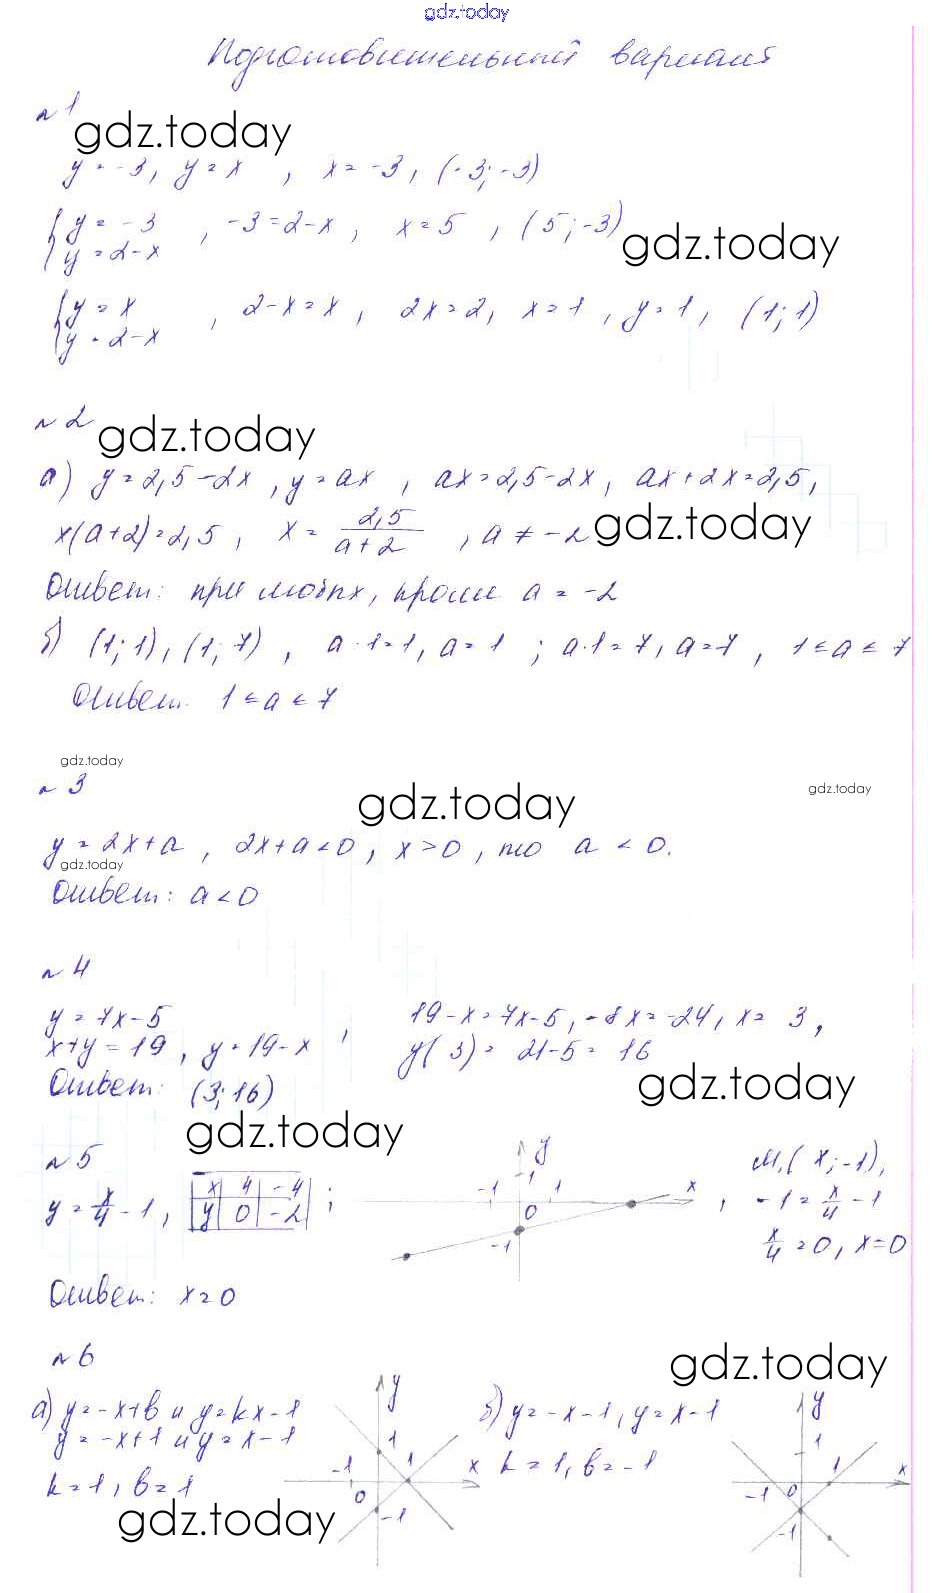 gdz.today
Подготовительный вариант
№1
gdz.today
y = -3, y = x, x = -3, (-3; -3)
{ y = -3
y = 2-x , -3 = 2-x, x = 5, (5; -3)
gdz.today
{ y = x
y = 2-x , 2-x = x, 2x = 2, x = 1, y = 1, (1; 1)
№2
gdz.today
а) y = 2,5-2x, y = ax, ax = 2,5-2x, ax+2x = 2,5,
x(a+2) = 2,5, x = 2,5/(a+2), a ≠ -2
gdz.today
Ответ: при любых, кроме a = -2
б) (1; 1), (1; 7), a·1 = 1, a = 1; a·1 = 7, a = 7, 1 ≤ a ≤ 7
Ответ. 1 ≤ a ≤ 7
gdz.today
№3
gdz.today
gdz.today
y = 2x+a, 2x+a<0, x>0, то a < 0.
gdz.today
Ответ: a<0
№4
y = 7x-5
x+y = 19, y = 19-x , 19-x = 7x-5, -8x = -24, x = 3,
y(3) = 21-5 = 16
Ответ: (3; 16)
gdz.today
gdz.today
№5
y = x/4 - 1, x 4 -4
y 0 -2 ;
y
1
-1 1 x
0
-1
, M₁(x; -1),
-1 = x/4 - 1
x/4 = 0, x = 0
Ответ: x = 0
№6
gdz.today
а) y = -x+b и y = kx-1
y = -x+1 и y = x-1
k = 1, b = 1
y
1
-1 1 x
0
-1
б) y = -x-1, y = x-1
k = 1, b = -1
y
1
1 x
-1 0
-1
gdz.today